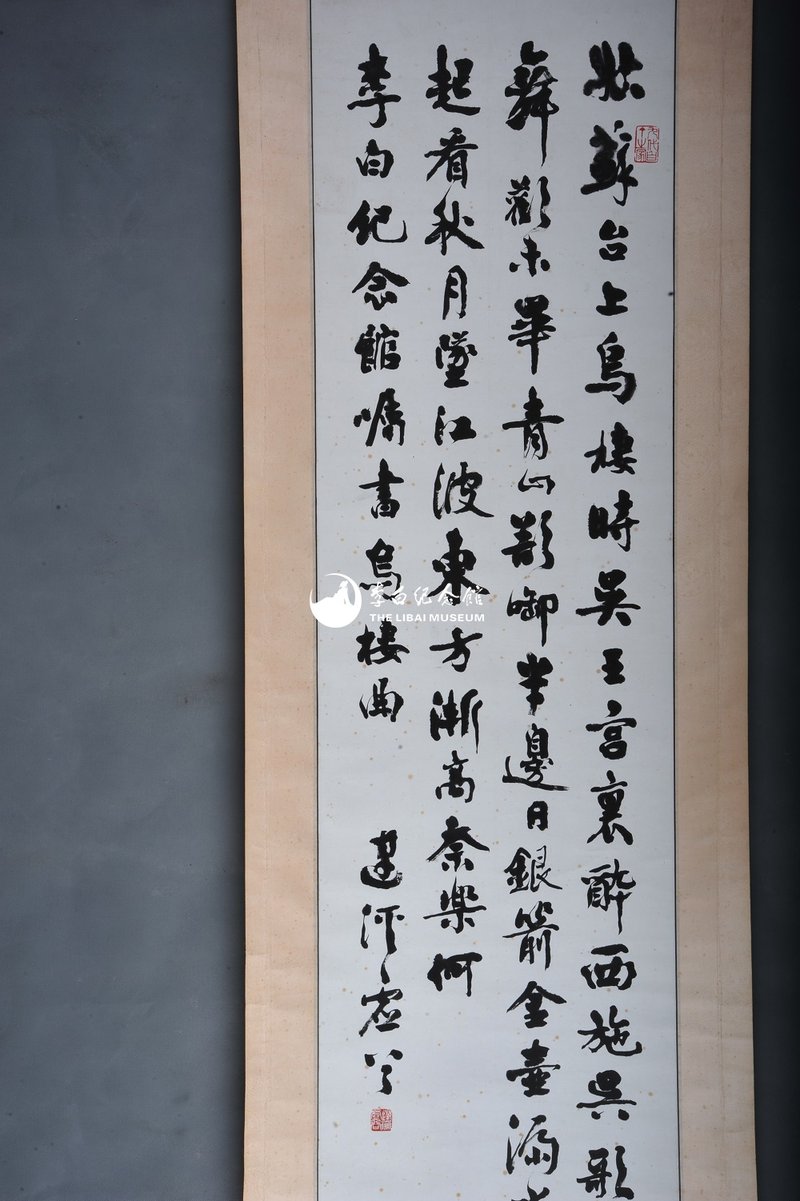 姑蘇台上烏棲時吳王宮裏醉西施吳歌
舞歡未畢青山欲啣半邊日銀箭金壺漏
起看秋月墜江波東方漸高奈樂何
李白紀念館囑書烏棲曲
李白纪念館
THE LIBAI MUSEUM